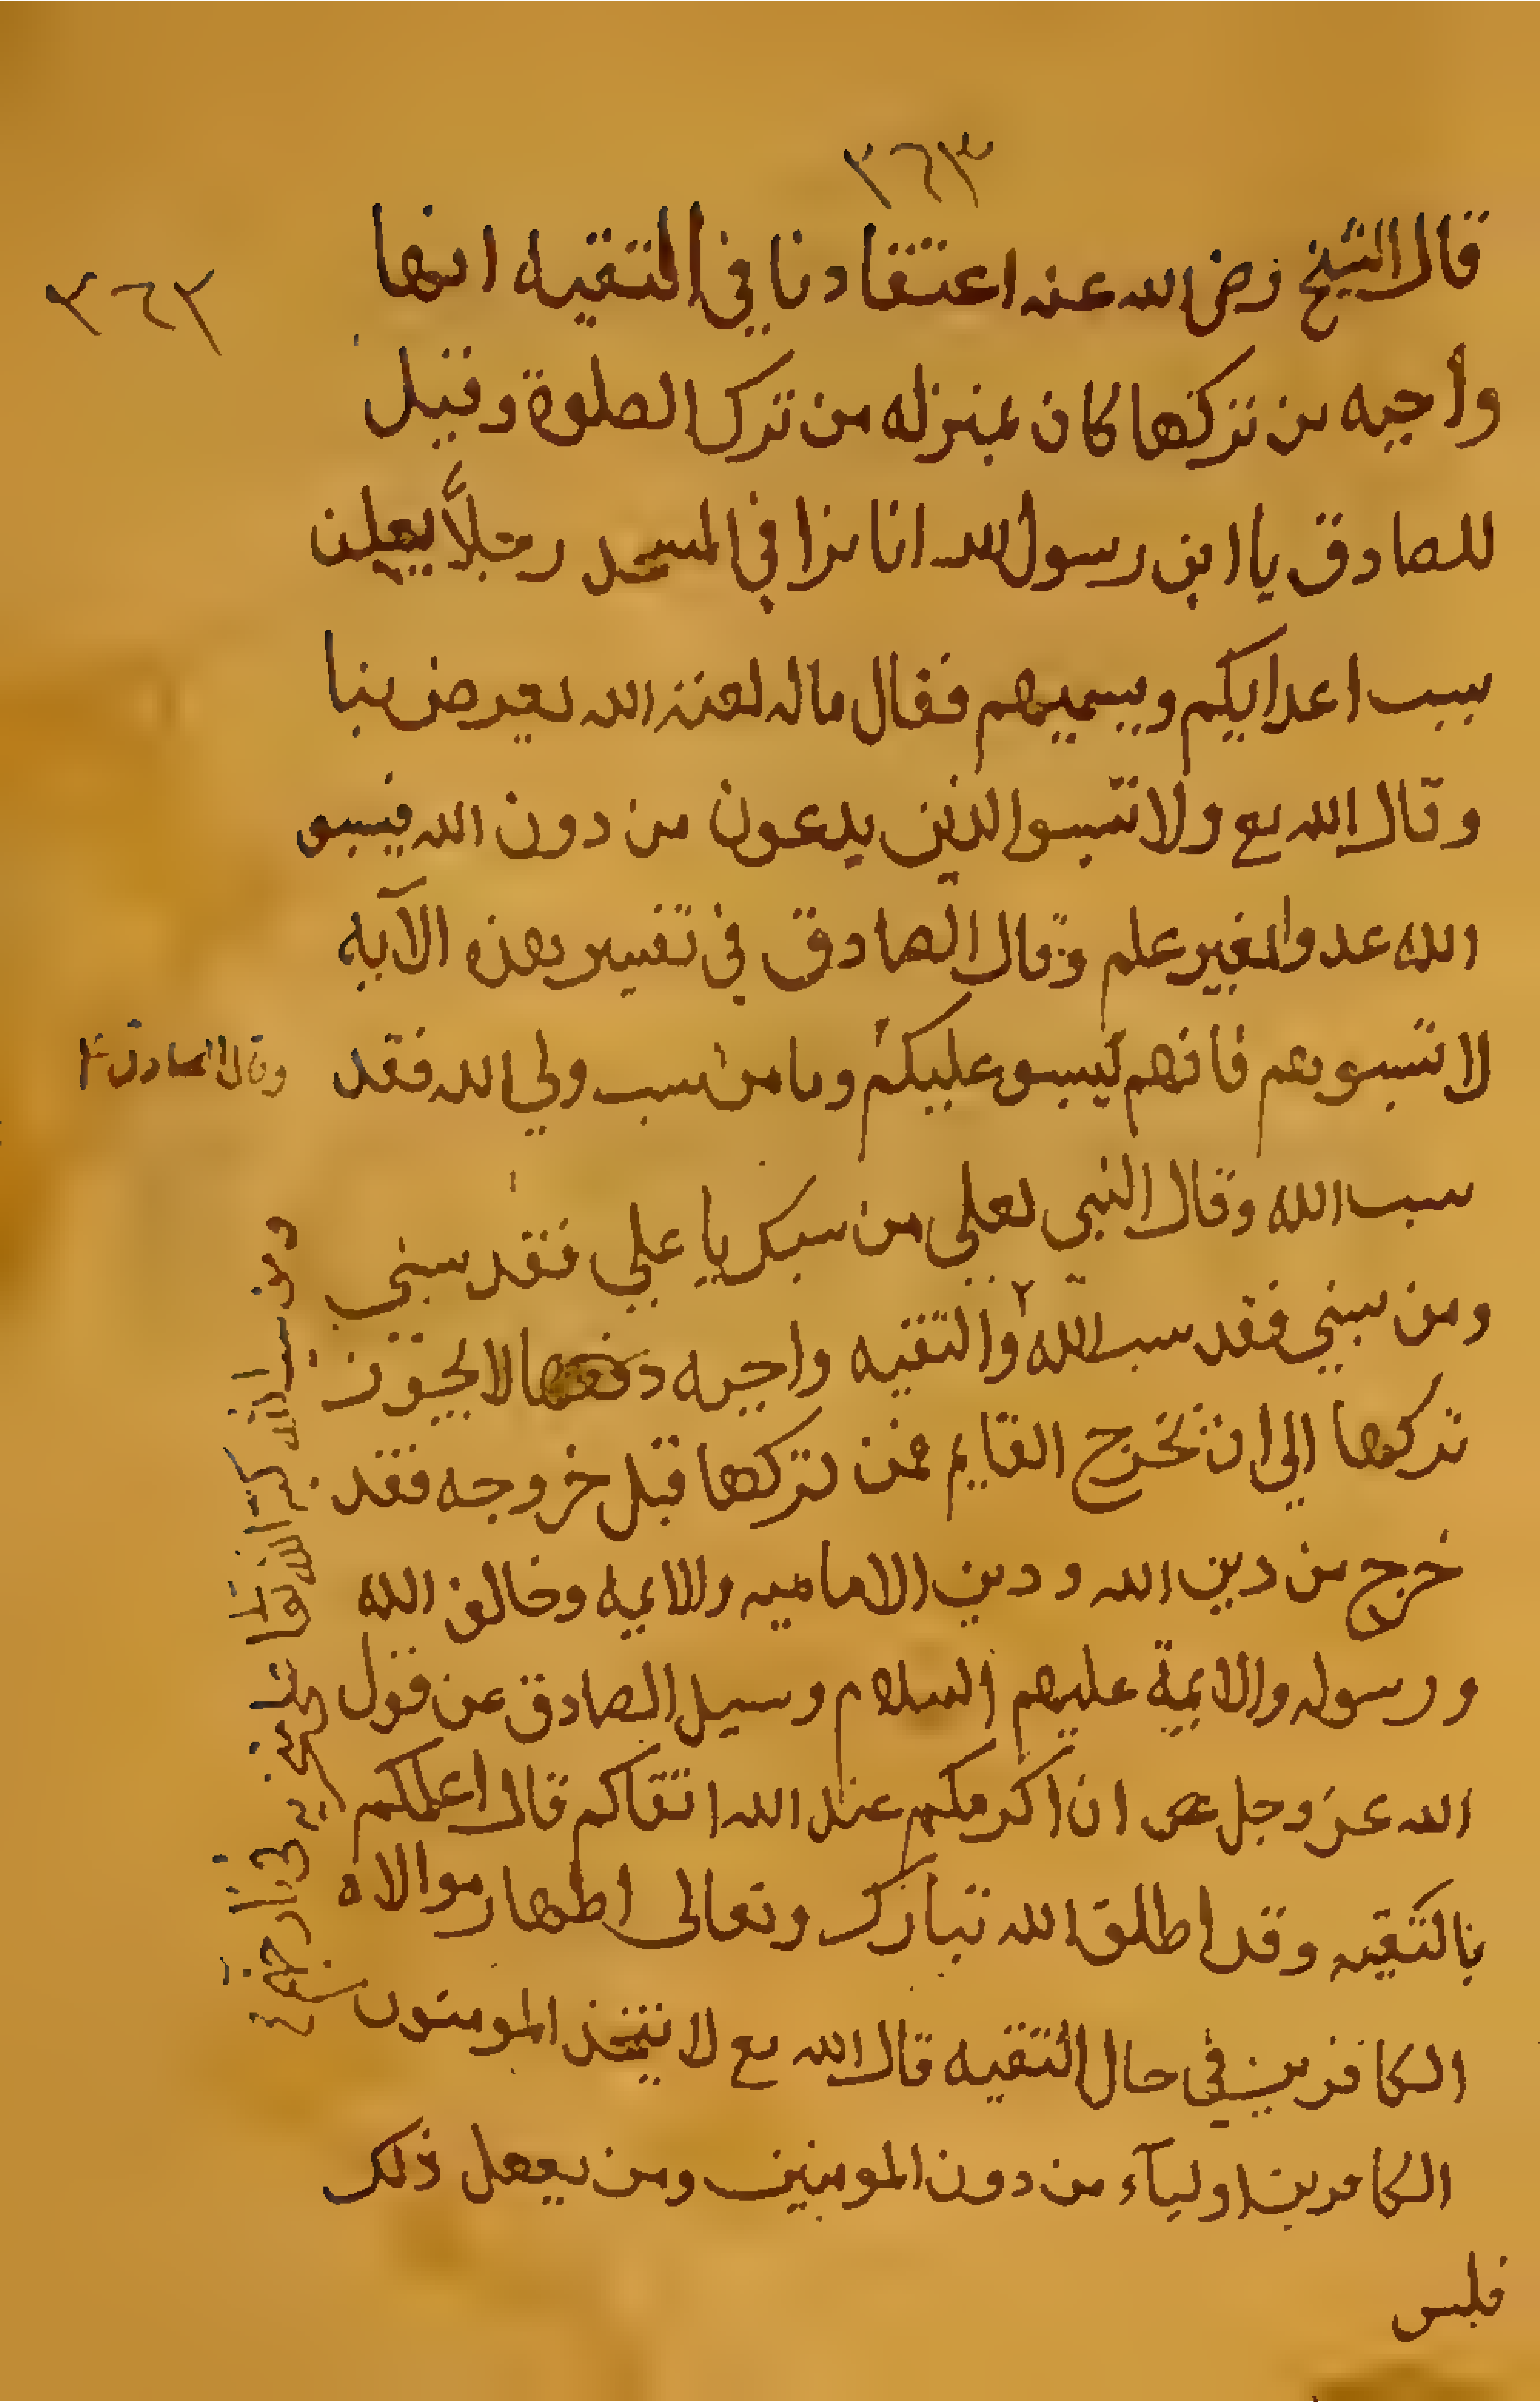 ٣٦٣
٣٦٣
قال الشيخ رضى الله عنه اعتقادنا في التقيه انها
واجبه من تركها كان بمنزله من ترك الصلوة وقيل
للصادق يا ابن رسول الله انا نرا في المسجد رجلاً يعلن
بسب اعدايكم ويسميهم فقال ماله لعنه الله يعرض بنا
وقال الله تع ولا تسبوا الذين يدعون من دون الله فيسبو
الله عدوا بغير علم وقال الصادق في تفسير هذه الآيه
لا تسبوهم فانهم يسبو عليكم وما من سب ولي الله فقد
وقال الصادق ع
سب الله وقال النبي لعلي من سبك يا علي فقد سبني
ومن سبني فقد سب الله ٢ والتقيه واجبه دفعها لا يجوز
تركها الى ان يخرج القايم فمن تركها قبل خروجه فقد
خرج من دين الله ودين الاماميه والايمه وخالف الله
ورسوله والايمة عليهم السلام وسيل الصادق عن قول
الله عز وجل ان اكرمكم عند الله اتقاكم قال اعملكم
بالتقيه وقد اطلق الله تبارك وتعالى اظهار موالاه
الكافرين في حال التقيه قال الله تع لا يتخذ المومنون
الكافرين اولياء من دون المومنين ومن يفعل ذلك
فليس
ومن سب الله كبه الله تعا على منخريه في نار جهنم